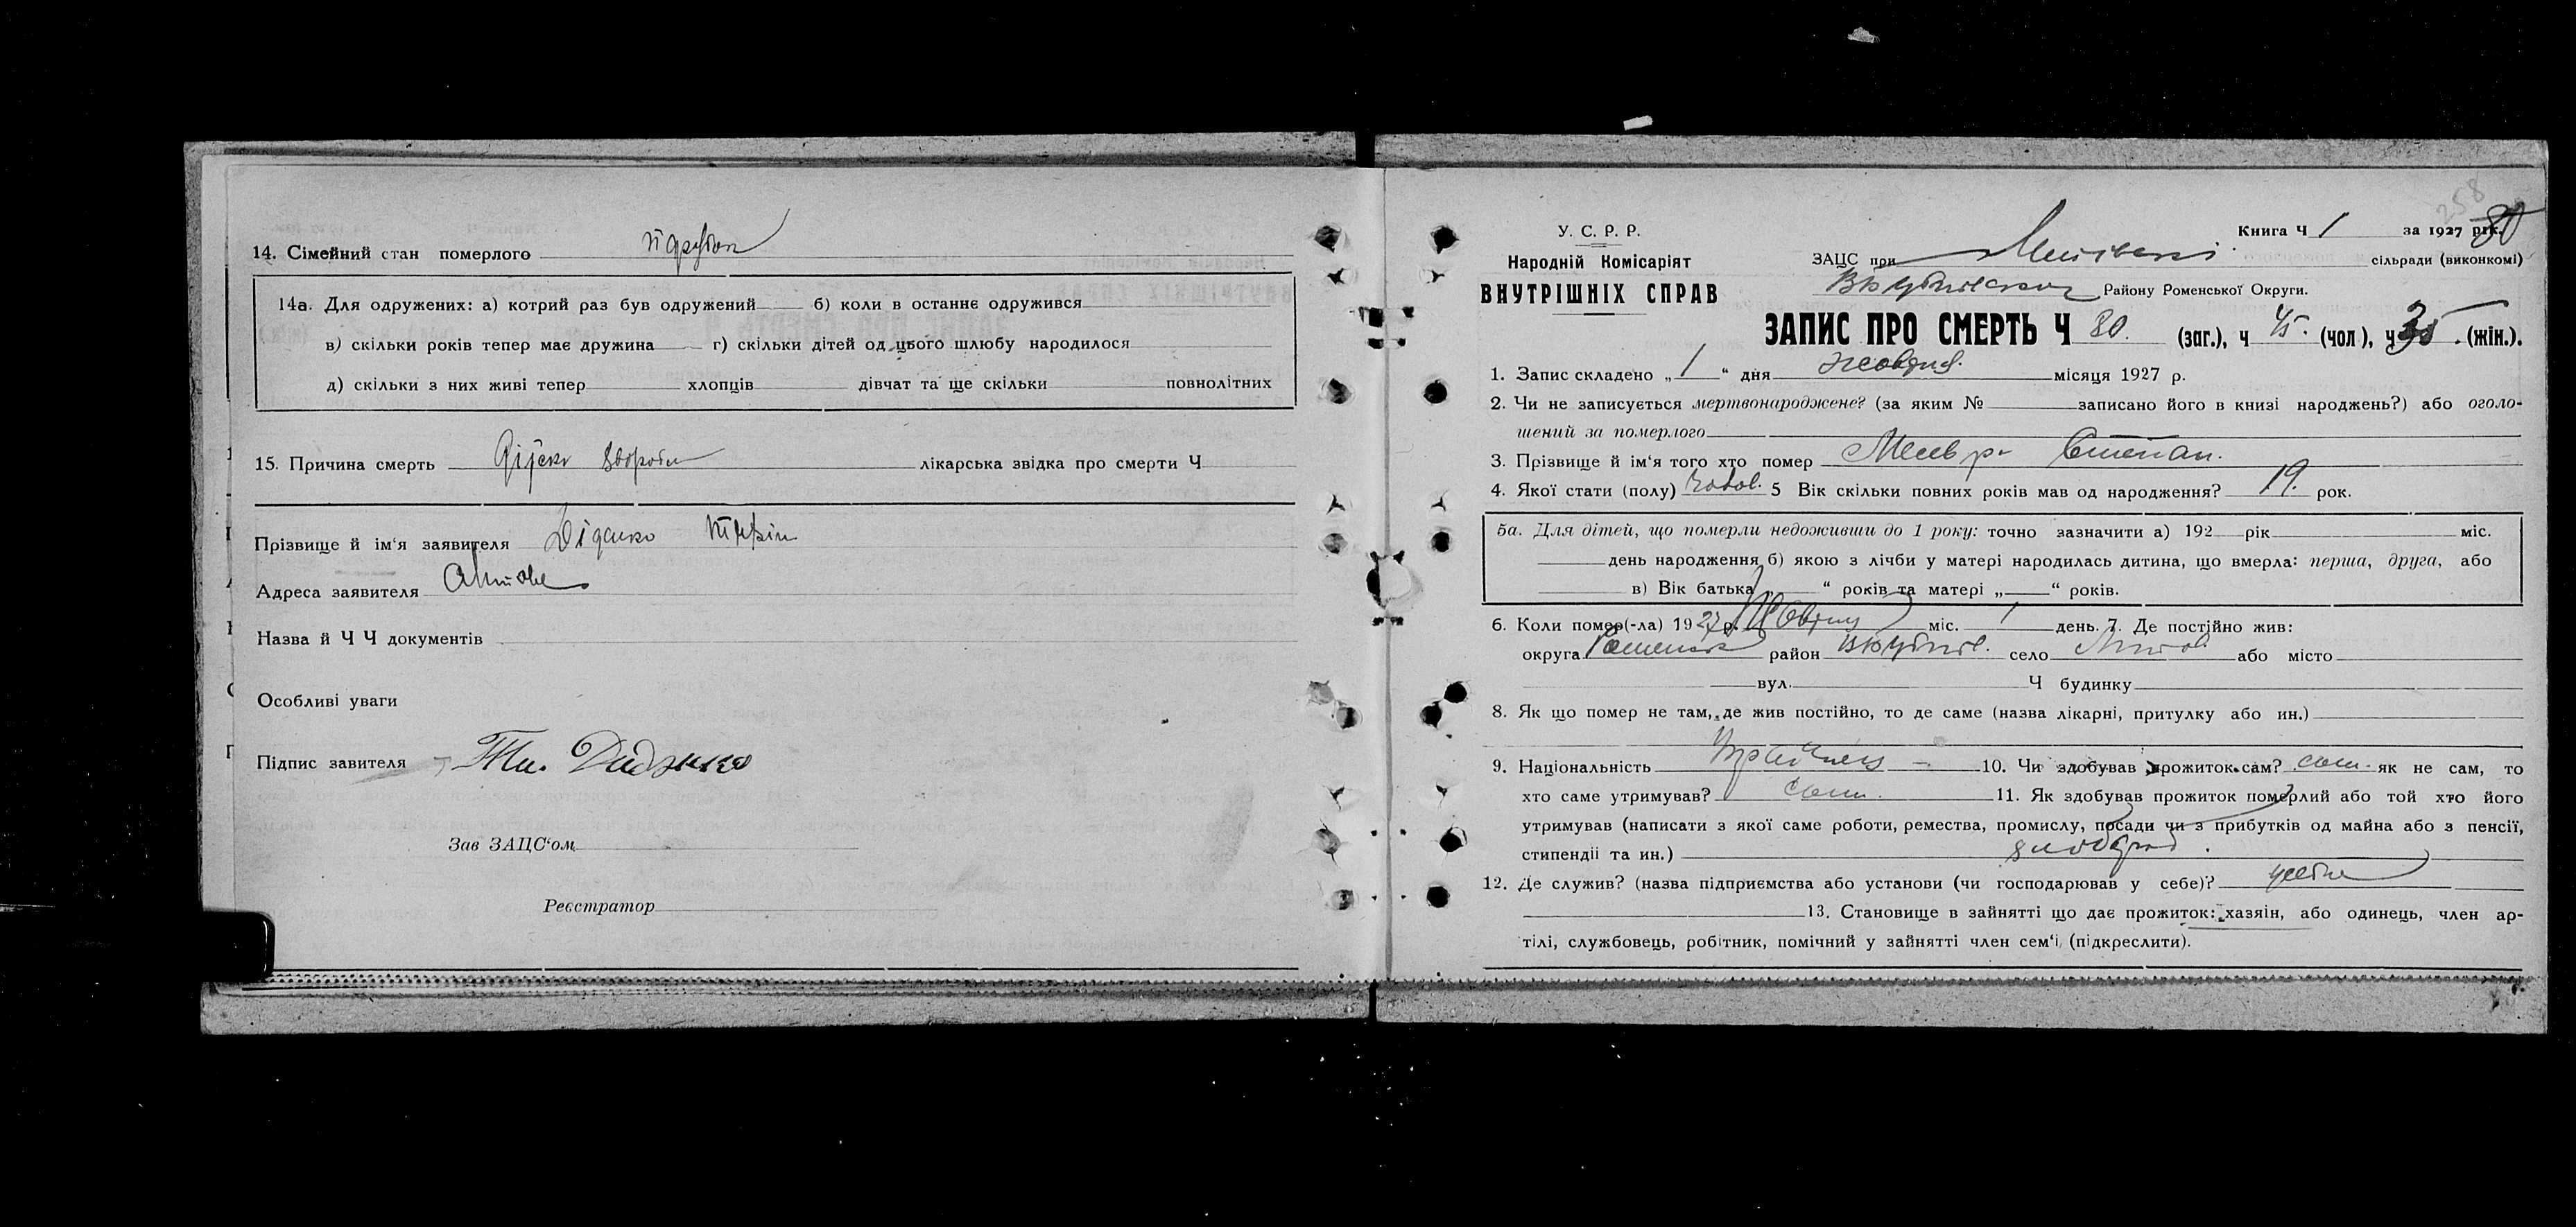 14. Сімейний стан померлого
14а. Для одружених: а) котрий раз був одружений б) коли в останнє одружився
в) скільки років тепер має дружина г) скільки дітей од цього шлюбу народилося
д) скільки з них живі тепер хлопців дівчат та ще скільки повнолітних
15. Причина смерть лікарська звідка про смерти Ч
Прізвище й ім'я заявителя Діденко
Адреса заявителя
Назва й Ч Ч документів
Особливі уваги
Підпис завителя
Зав ЗАЦС'ом
Реєстратор
258
У. С. Р. Р.
Народній Комісаріят
ВНУТРІШНІХ СПРАВ
Книга Ч 1 за 1927 рік. 80
ЗАЦС при сільради (виконкомі)
Району Роменської Округи.
ЗАПИС ПРО СМЕРТЬ Ч 80. (заг.), ч 45. (чол), ч 35. (жін.).
1. Запис складено „1“ дня жовтня місяця 1927 р.
2. Чи не записується мертвонароджене? (за яким № записано його в книзі народжень?) або оголо-
шений за померлого
3. Прізвище й ім'я того хто помер Степан.
4. Якої стати (полу) чолов. 5 Вік скільки повних років мав од народження? 19. рок.
5а. Для дітей, що померли недоживши до 1 року: точно зазначити а) 192 рік міс.
день народження б) якою з лічби у матері народилась дитина, що вмерла: перша, друга, або
в) Вік батька „ “ років та матері „ “ років.
6. Коли помер(-ла) 1927 р. Жовтня міс. 1 день. 7. Де постійно жив:
округа Роменська район село або місто
вул. Ч будинку
8. Як що помер не там, де жив постійно, то де саме (назва лікарні, притулку або ин.)
9. Національність Українець 10. Чи здобував прожиток сам? сам. як не сам, то
хто саме утримував? сам. 11. Як здобував прожиток померлий або той хто його
утримував (написати з якої саме роботи, ремества, промислу, посади чи з прибутків од майна або з пенсії,
стипендії та ин.) хлібороб.
12. Де служив? (назва підприємства або установи (чи господарював у себе)? у себе
13. Становище в зайнятті що дає прожиток: хазяін, або одинець, член ар-
тілі, службовець, робітник, помічний у зайнятті член сем'і (підкреслити).